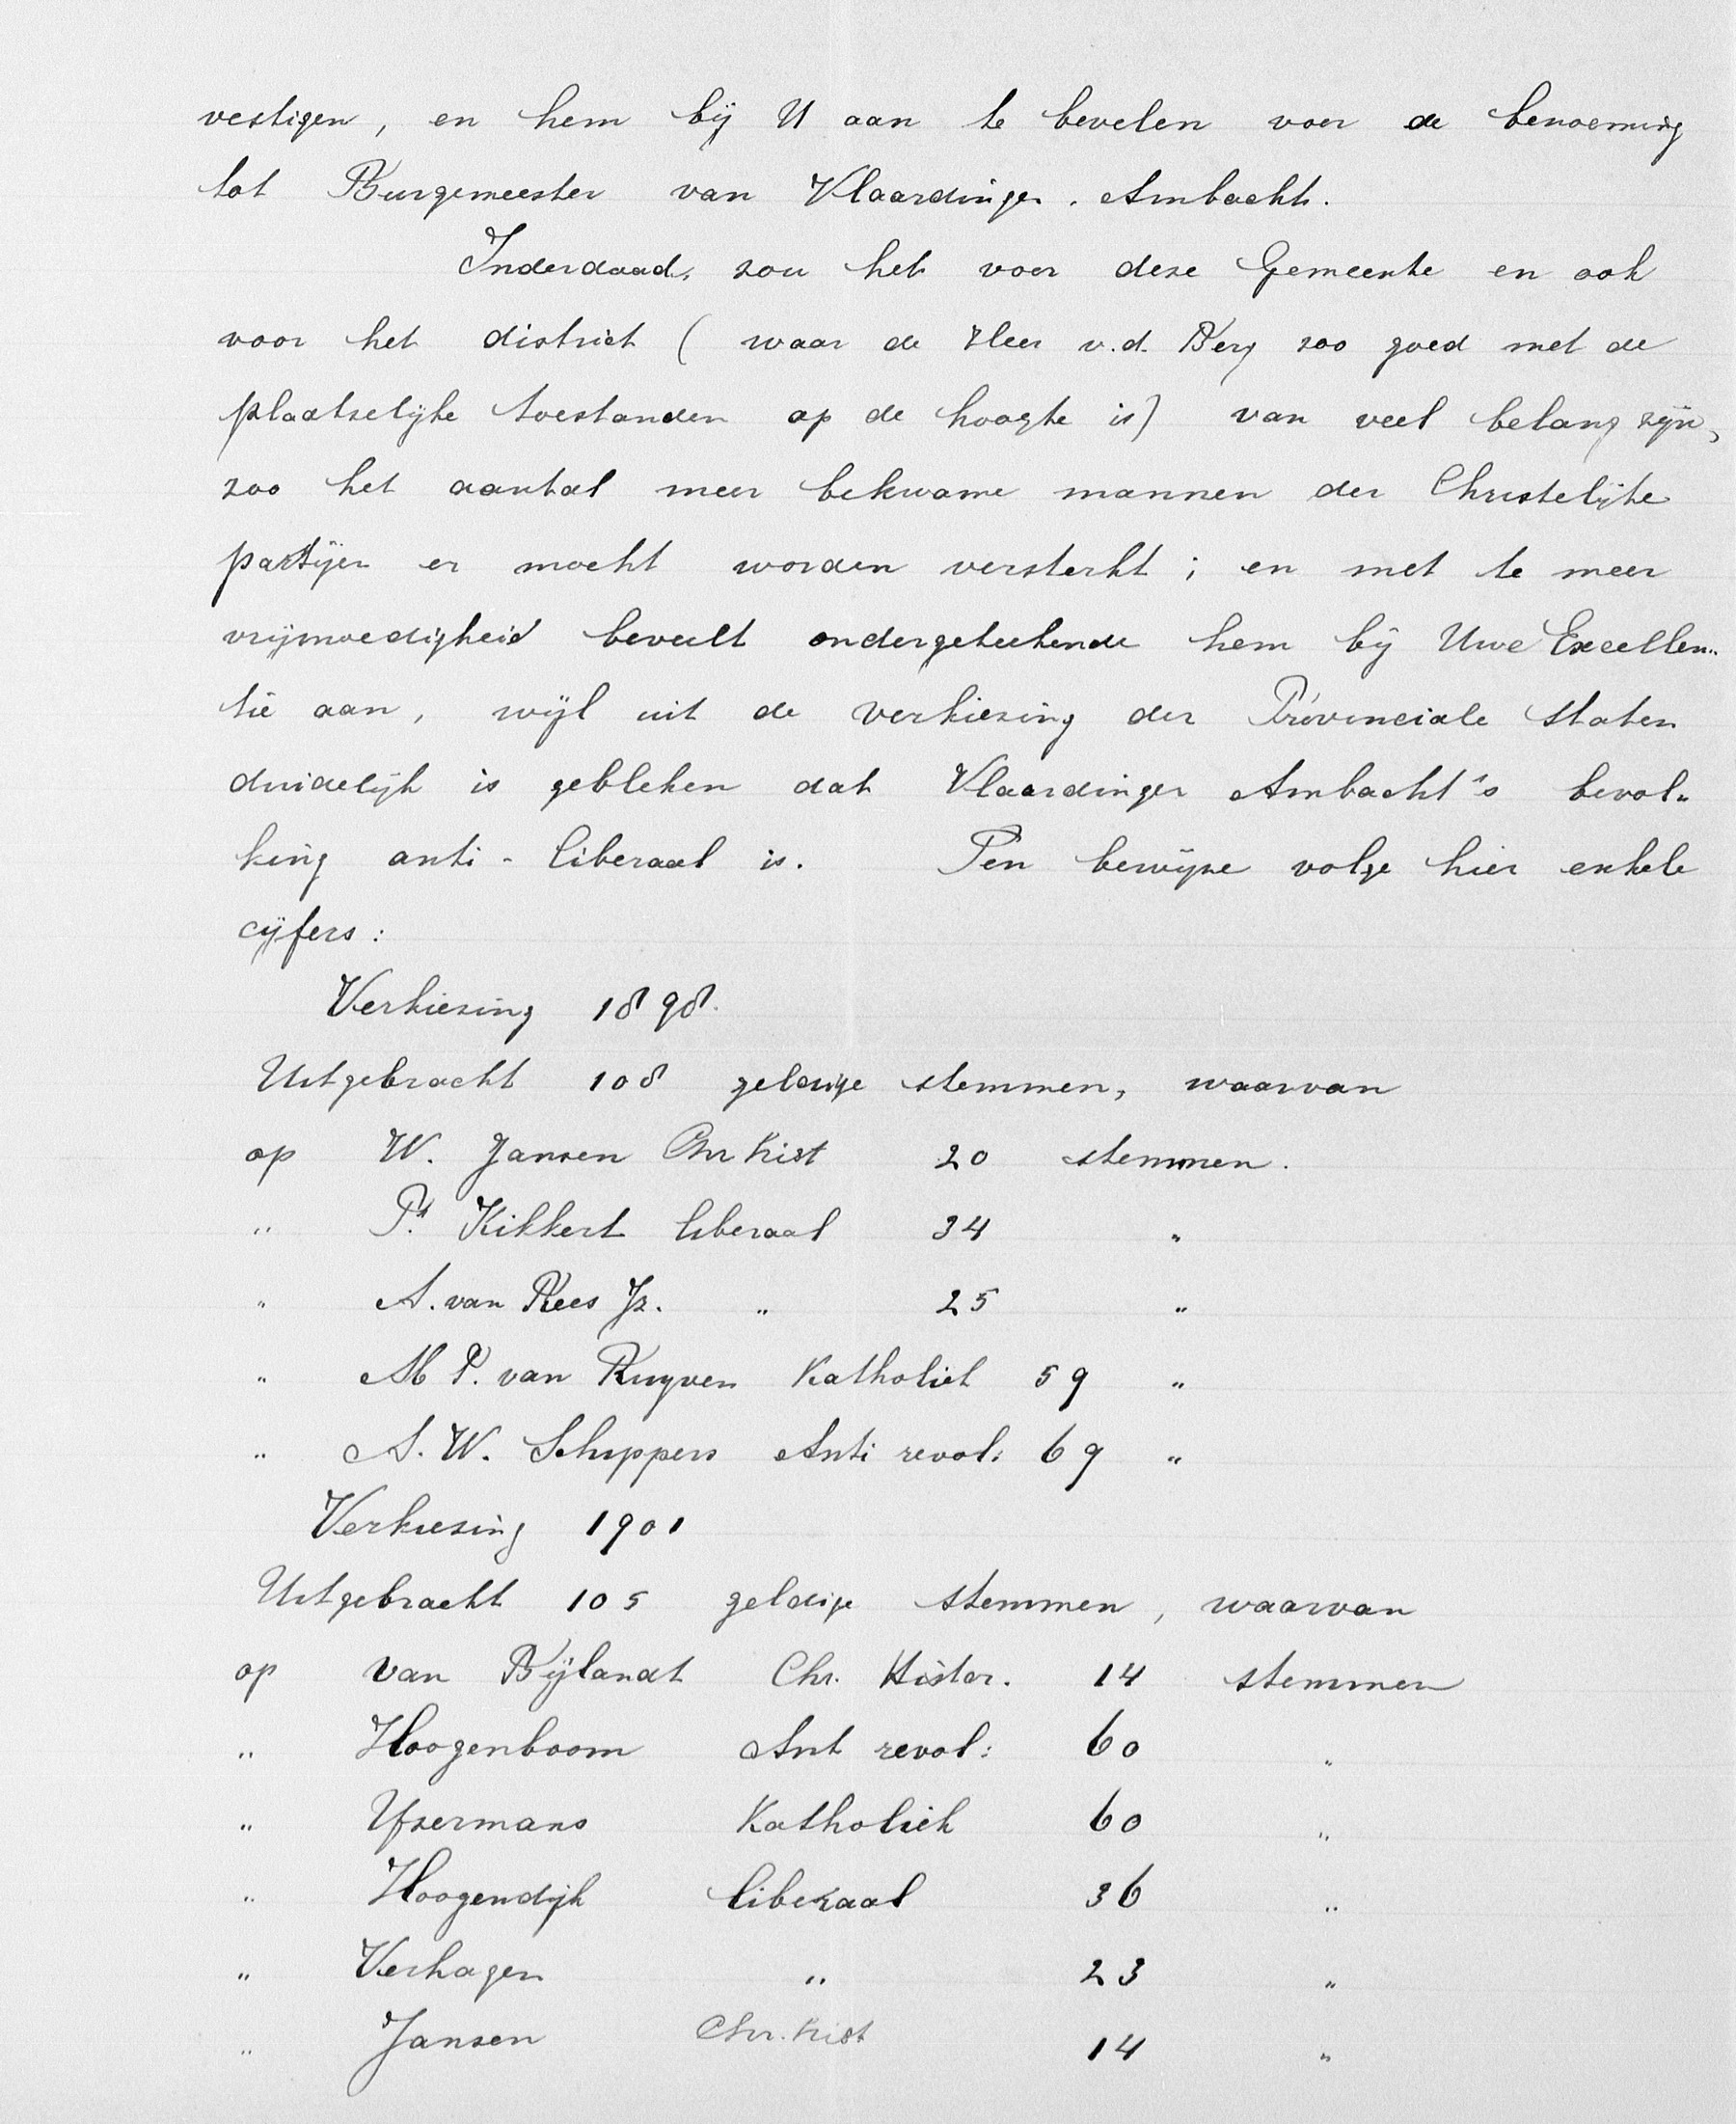 vestigen, en hem bij U aan te bevelen voor de benoeming
tot Burgemeester van Vlaardinger-Ambacht.
Inderdaad, zou het voor deze Gemeente en ook
voor het district ( waar de Heer v.d. Berg zoo goed met de
plaatselijke toestanden op de hoogte is) van veel belang zijn,
zoo het aantal meer bekwame mannen der Christelijke
partijen er mocht worden versterkt; en met te meer
vrijmoedigheid beveelt ondergeteekende hem bij Uwe Excellen„
tie aan, wijl uit de verkiezing der Provinciale Staten
duidelijk is gebleken dat Vlaardinger Ambacht's bevol„
king anti-liberaal is. Ten bewijze volge hier enkele
cijfers:
Verkiezing 1898.
Uitgebracht 108 geldige stemmen, waarvan
op W. Jansen Chr Hist 20 stemmen.
„ Pt. Kikkert liberaal 34 „
„ A. van Rees Jz. „ 25 „
„ M P. van Ruyven Katholiek 59 „
„ A. W. Schippers Anti revol: 69 „
Verkiezing 1901
Uitgebracht 105 geldige stemmen, waarvan
op van Bijlandt Chr. Histor. 14 stemmen
„ Hoogenboom Ant revol: 60 „
„ IJsermans Katholiek 60 „
„ Hoogendijk liberaal 36 „
„ Verhagen „ 23 „
„ Jansen Chr. Hist 14 „